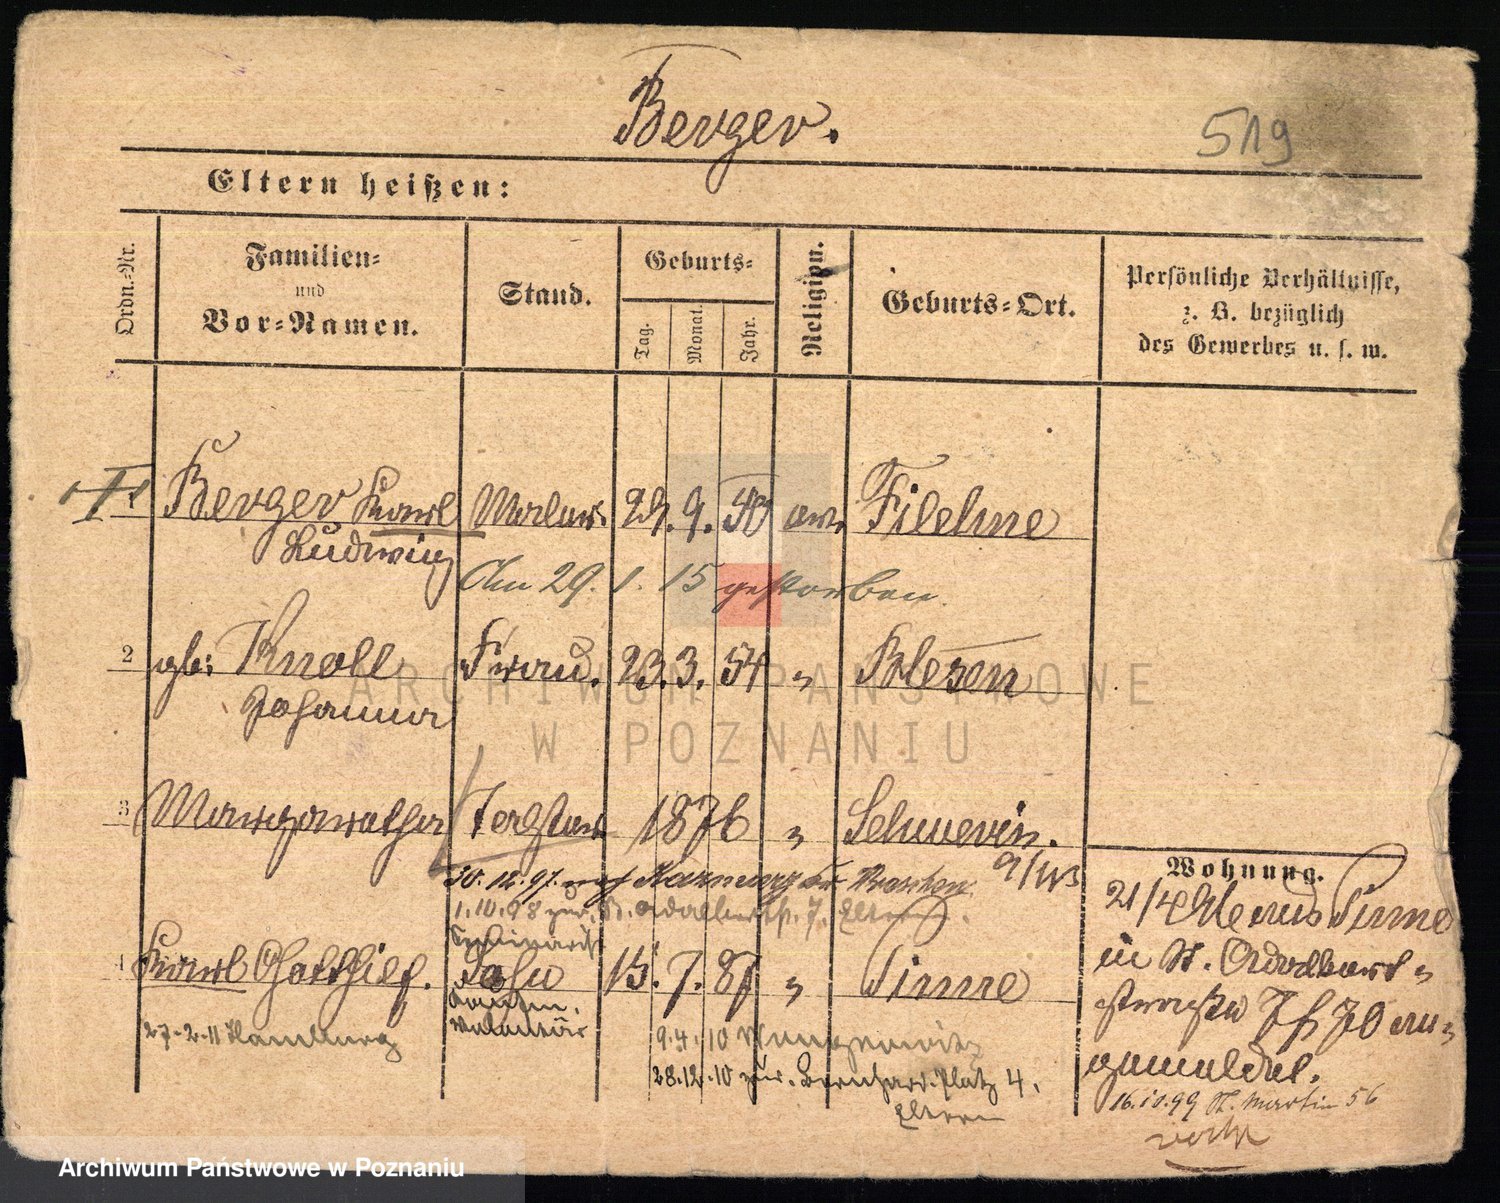 Berger.
519
Eltern heißen:
Ordn.-Nr.
Familien-
und
Vor-Namen.
Stand.
Geburts-
Tag.
Monat.
Jahr.
Religion.
Geburts-Ort.
Persönliche Verhältnisse,
z. B. bezüglich
des Gewerbes u. s. w.
1
Berger Karl
Ludwig
Maler
29. 9. 50
ev.
Filehne
Am 29. 1. 15 gestorben.
2
gb: Knoll
Johanna
Frau.
23. 3. 54
"
Blesen
3
Margarethe
Tochter
1876
"
Schwerin.
30.12.97. nach
1.10.98 zur. St. Adalbertstr. 7. Eltern.
4
Karl Gotthief.
Sohn
13. 7. 87
"
Pinne
Volontär
27-2-11 Hamburg
9.4.10
28.12.10 zur. Bernhard. Platz 4.
Eltern
Wohnung.
21/4 96 aus Pinne
in St. Adalbert-
straße 7 ange-
meldet.
16.10.99 St. Martin 56
ARCHIWUM PAŃSTWOWE
W POZNANIU
Archiwum Państwowe w Poznaniu